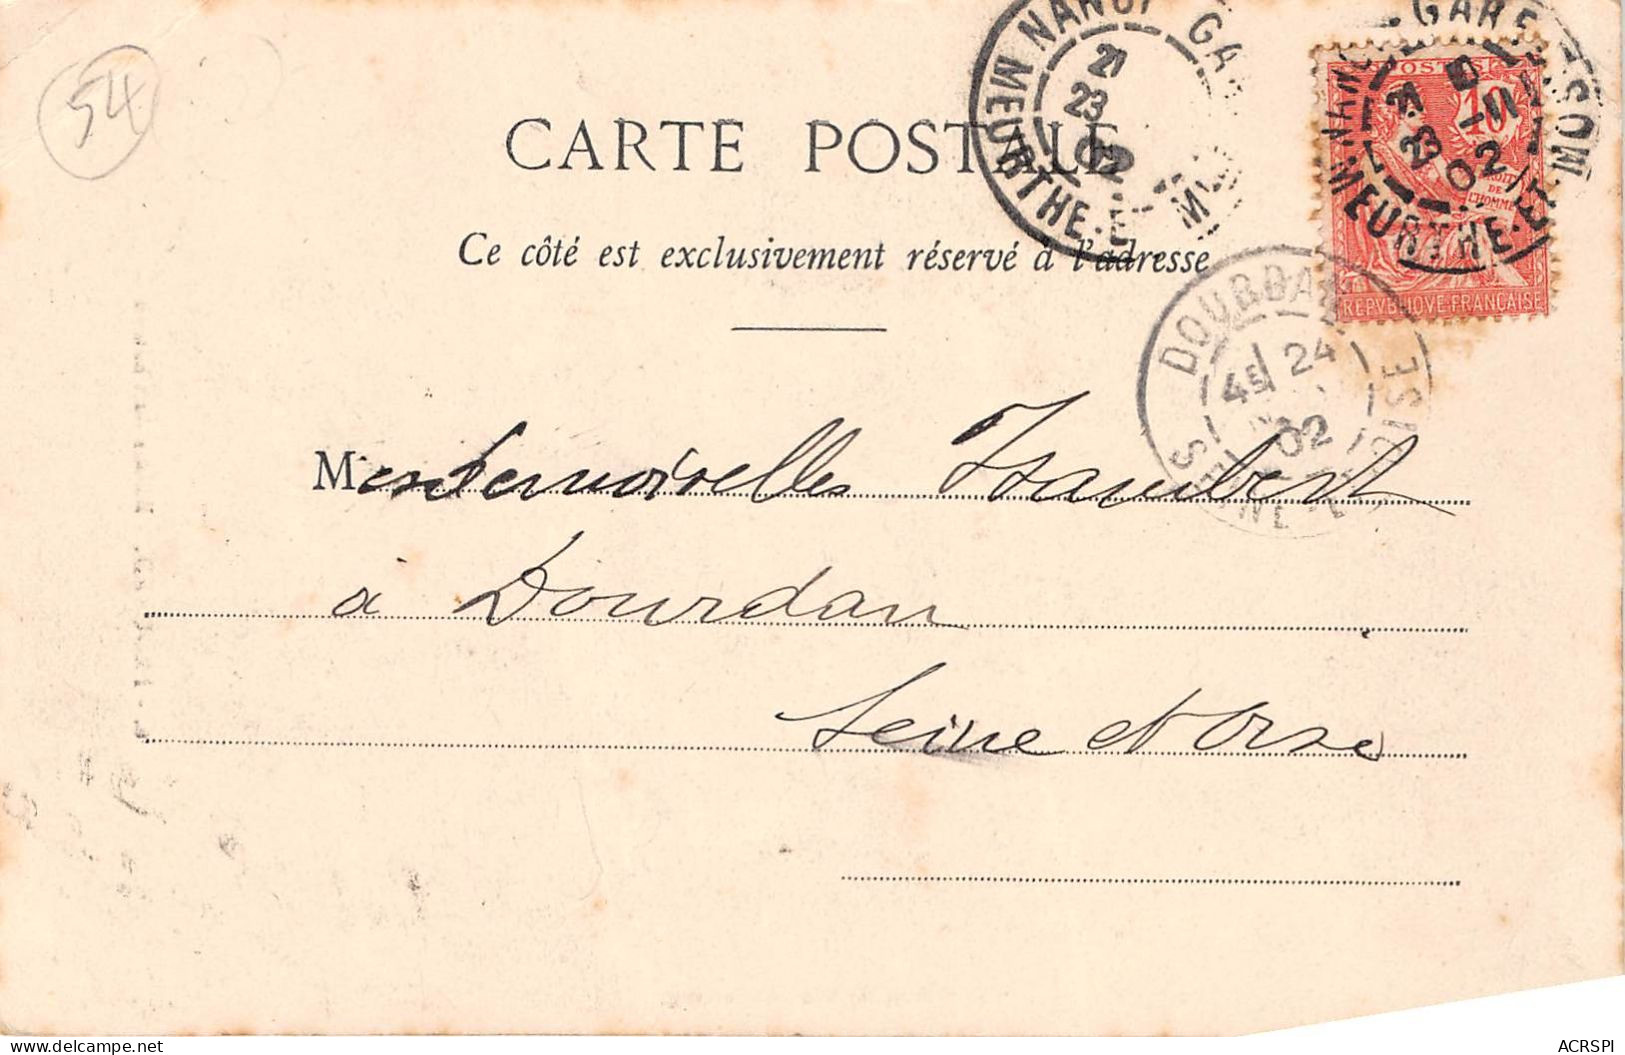 54
CARTE POSTALE
Ce côté est exclusivement réservé à l'adresse
POSTES
10
DROITS
DE
L'HOMME
REPVBLIQVE FRANÇAISE
GARE
MEURTHE-ET-MOSELLE
23
02
NANCY GARE
MEURTHE-ET-M
21
23
02
DOURDAN
SEINE-ET-OISE
4E 24
02
Mesdemoiselles Isambert
à Dourdan
Seine et Oise
ACRSPI